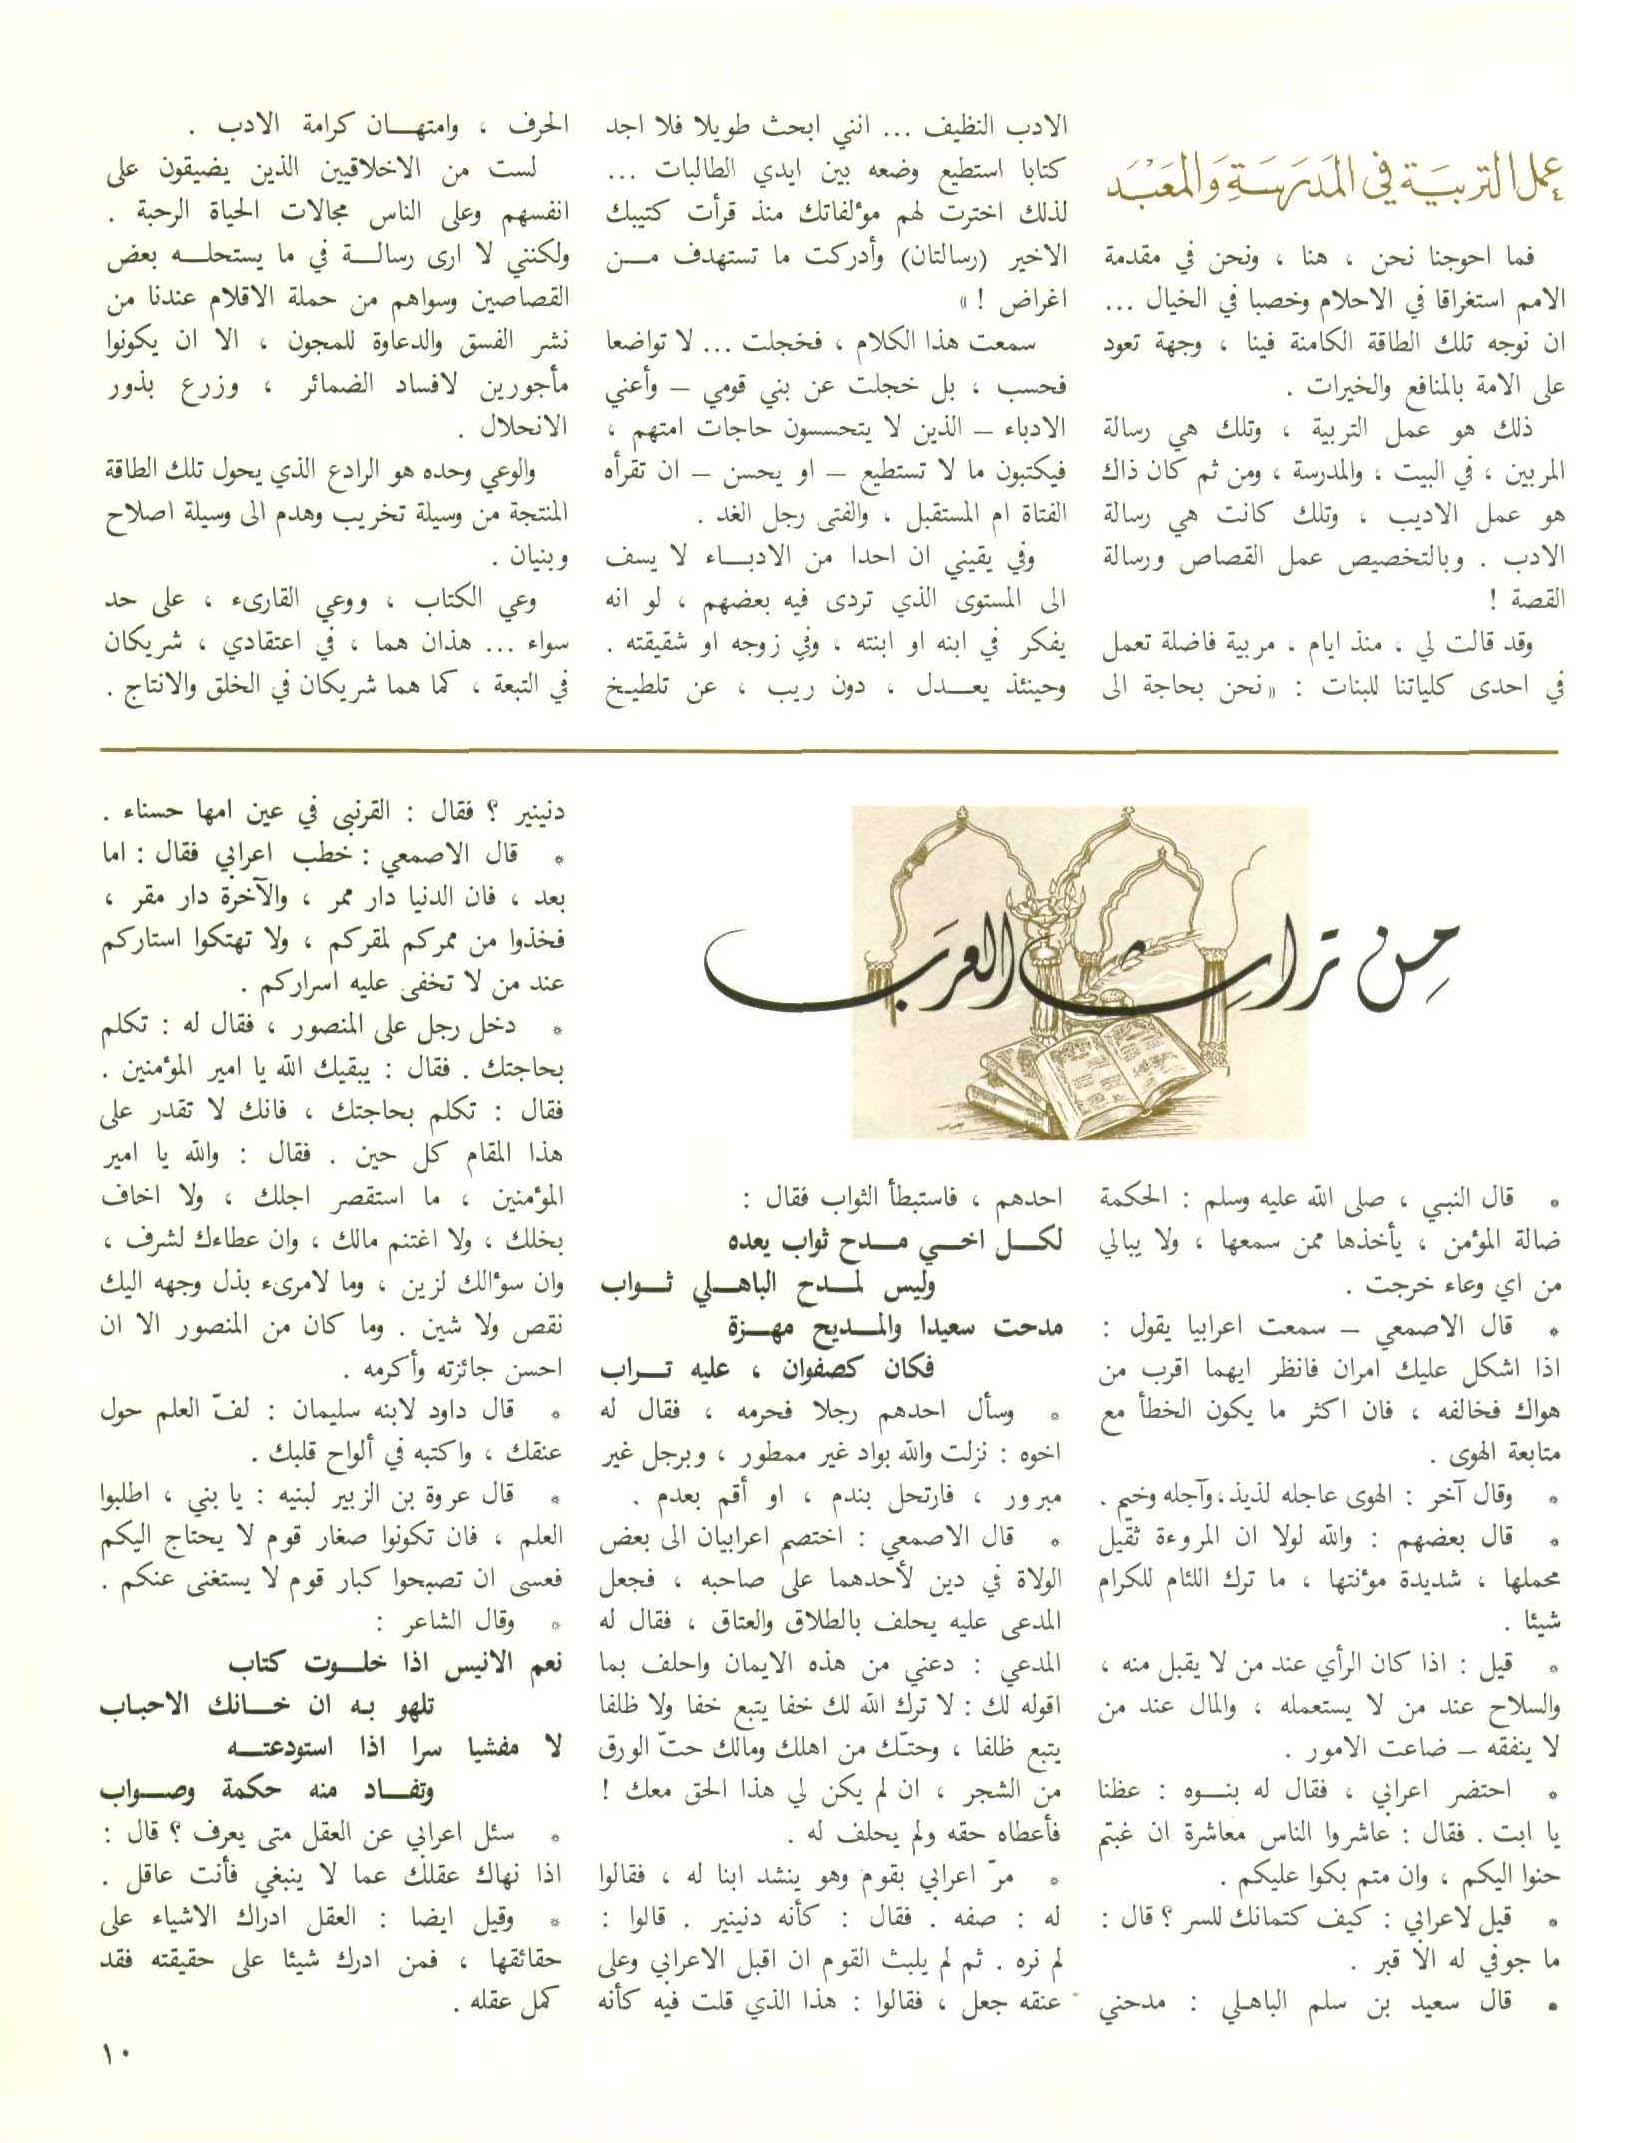 عمل التربية في المدرسة والمعبد
فما احوجنا نحن ، هنا ، ونحن في مقدمة
الامم استغراقا في الاحلام وخصبا في الخيال ...
ان نوجه تلك الطاقة الكامنة فينا ، وجهة تعود
على الامة بالمنافع والخيرات .
ذلك هو عمل التربية ، وتلك هي رسالة
المربين ، في البيت ، والمدرسة ، ومن ثم كان ذاك
هو عمل الاديب ، وتلك كانت هي رسالة
الادب . وبالتخصيص عمل القصاص ورسالة
القصة !
وقد قالت لي ، منذ ايام ، مربية فاضلة تعمل
في احدى كلياتنا للبنات : « نحن بحاجة الى
الادب النظيف ... انني ابحث طويلا فلا اجد
كتابا استطيع وضعه بين ايدي الطالبات ...
لذلك اخترت لهم مؤلفاتك منذ قرأت كتيبك
الاخير (رسالتان) وأدركت ما تستهدف مـن
اغراض ! »
سمعت هذا الكلام ، فخجلت ... لا تواضعا
فحسب ، بل خجلت عن بني قومي – وأعني
الادباء – الذين لا يتحسسون حاجات امتهم ،
فيكتبون ما لا تستطيع – او يحسن – ان تقرأه
الفتاة ام المستقبل ، والفتى رجل الغد .
وفي يقيني ان احدا من الادبـاء لا يسف
الى المستوى الذي تردى فيه بعضهم ، لو انه
يفكر في ابنه او ابنته ، وفي زوجه او شقيقته .
وحينئذ يعـدل ، دون ريب ، عن تلطيـخ
الحرف ، وامتهـان كرامة الادب .
لست من الاخلاقيين الذين يضيقون على
انفسهم وعلى الناس مجالات الحياة الرحبة .
ولكنني لا ارى رسالـة في ما يستحلـه بعض
القصاصين وسواهم من حملة الاقلام عندنا من
نشر الفسق والدعاوة للمجون ، الا ان يكونوا
مأجورين لافساد الضمائر ، وزرع بذور
الانحلال .
والوعي وحده هو الرادع الذي يحول تلك الطاقة
المنتجة من وسيلة تخريب وهدم الى وسيلة اصلاح
وبنيان .
وعي الكتاب ، ووعي القارىء ، على حد
سواء ... هذان هما ، في اعتقادي ، شريكان
في التبعة ، كما هما شريكان في الخلق والانتاج .
من تراث العرب
* قال النبـي ، صلى الله عليه وسلم : الحكمة
ضالة المؤمن ، يأخذها ممن سمعها ، ولا يبالي
من اي وعاء خرجت .
* قال الاصمعي – سمعت اعرابيا يقول :
اذا اشكل عليك امران فانظر ايهما اقرب من
هواك فخالفه ، فان اكثر ما يكون الخطأ مع
متابعة الهوى .
* وقال آخر : الهوى عاجله لذيذ، وآجله وخيم .
* قال بعضهم : والله لولا ان المروءة ثقيل
محملها ، شديدة مؤنتها ، ما ترك اللئام للكرام
شيئا .
* قيل : اذا كان الرأي عند من لا يقبل منه ،
والسلاح عند من لا يستعمله ، والمال عند من
لا ينفقه – ضاعت الامور .
* احتضر اعرابي ، فقال له بنـوه : عظنا
يا ابت . فقال : عاشروا الناس معاشرة ان غبتم
حنوا اليكم ، وان متم بكوا عليكم .
* قيل لاعرابي : كيف كتمانك للسر ؟ قال :
ما جوفي له الا قبر .
* قال سعيد بن سلم الباهلي : مدحني
احدهم ، فاستبطأ الثواب فقال :
لكـل اخـي مـدح ثواب يعده
وليس لمـدح الباهـلي ثـواب
مدحت سعيدا والمـديح مهـزة
فكان كصفوان ، عليه تـراب
* وسأل احدهم رجلا فحرمه ، فقال له
اخوه : نزلت والله بواد غير ممطور ، وبرجل غير
مبرور ، فارتحل بندم ، او أقم بعدم .
* قال الاصمعي : اختصم اعرابيان الى بعض
الولاة في دين لأحدهما على صاحبه ، فجعل
المدعى عليه يحلف بالطلاق والعتاق ، فقال له
المدعي : دعني من هذه الايمان واحلف بما
اقوله لك : لا ترك الله لك خفا يتبع خفا ولا ظلفا
يتبع ظلفا ، وحتّك من اهلك ومالك حتّ الورق
من الشجر ، ان لم يكن لي هذا الحق معك !
فأعطاه حقه ولم يحلف له .
* مرّ اعرابي بقوم وهو ينشد ابنا له ، فقالوا
له : صفه . فقال : كأنه دنينير . قالوا :
لم نره . ثم لم يلبث القوم ان اقبل الاعرابي وعلى
عنقه جعل ، فقالوا : هذا الذي قلت فيه كأنه
دنينير ؟ فقال : القرنبى في عين امها حسناء .
* قال الاصمعي : خطب اعرابي فقال : اما
بعد ، فان الدنيا دار ممر ، والآخرة دار مقر ،
فخذوا من ممركم لمقركم ، ولا تهتكوا استاركم
عند من لا تخفى عليه اسراركم .
* دخل رجل على المنصور ، فقال له : تكلم
بحاجتك . فقال : يبقيك الله يا امير المؤمنين .
فقال : تكلم بحاجتك ، فانك لا تقدر على
هذا المقام كل حين . فقال : والله يا امير
المؤمنين ، ما استقصر اجلك ، ولا اخاف
بخلك ، ولا اغتنم مالك ، وان عطاءك لشرف ،
وان سؤالك لزين ، وما لامرىء بذل وجهه اليك
نقص ولا شين . وما كان من المنصور الا ان
احسن جائزته وأكرمه .
* قال داود لابنه سليمان : لفّ العلم حول
عنقك ، واكتبه في ألواح قلبك .
* قال عروة بن الزبير لبنيه : يا بني ، اطلبوا
العلم ، فان تكونوا صغار قوم لا يحتاج اليكم
فعسى ان تصبحوا كبار قوم لا يستغنى عنكم .
* وقال الشاعر :
نعم الانيس اذا خلـوت كتاب
تلهو بـه ان خـانك الاحبـاب
لا مفشيا سرا اذا استودعتـه
وتفـاد منه حكمة وصـواب
* سئل اعرابي عن العقل متى يعرف ؟ قال :
اذا نهاك عقلك عما لا ينبغي فأنت عاقل .
* وقيل ايضا : العقل ادراك الاشياء على
حقائقها ، فمن ادرك شيئا على حقيقته فقد
كمل عقله .
١٠